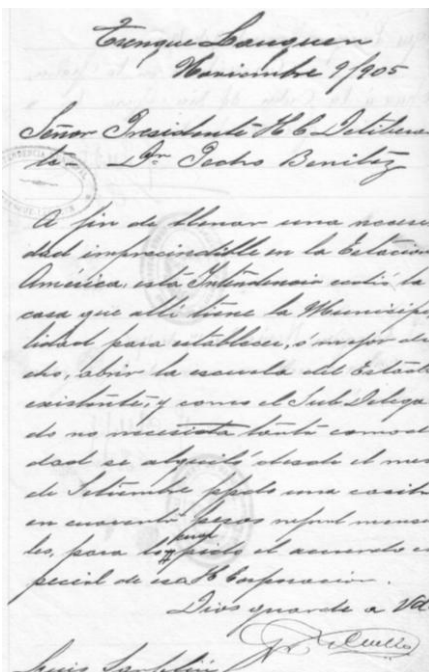 Trenque Lauquen
Noviembre 9/905
Señor Presidente H C Delibera
te - Dr Pedro Benitez
A fin de llenar una necesi
dad imprecindible en la Estacion
América, esta Intendencia cedió la
casa que alli tiene la Municipa
lidad para establecer, ó mejor di
cho, abrir la escuela del Estado
existente, y como el Sub Delega
do no necesita tanta comodi
dad se alquiló desde el mes
de Setiembre ppdo una casita
en cuarenta pesos m/nal mensua
les, para lo que pido el acuerdo es
pecial de esa H Corporacion.
Dios guarde a Vd
Luis